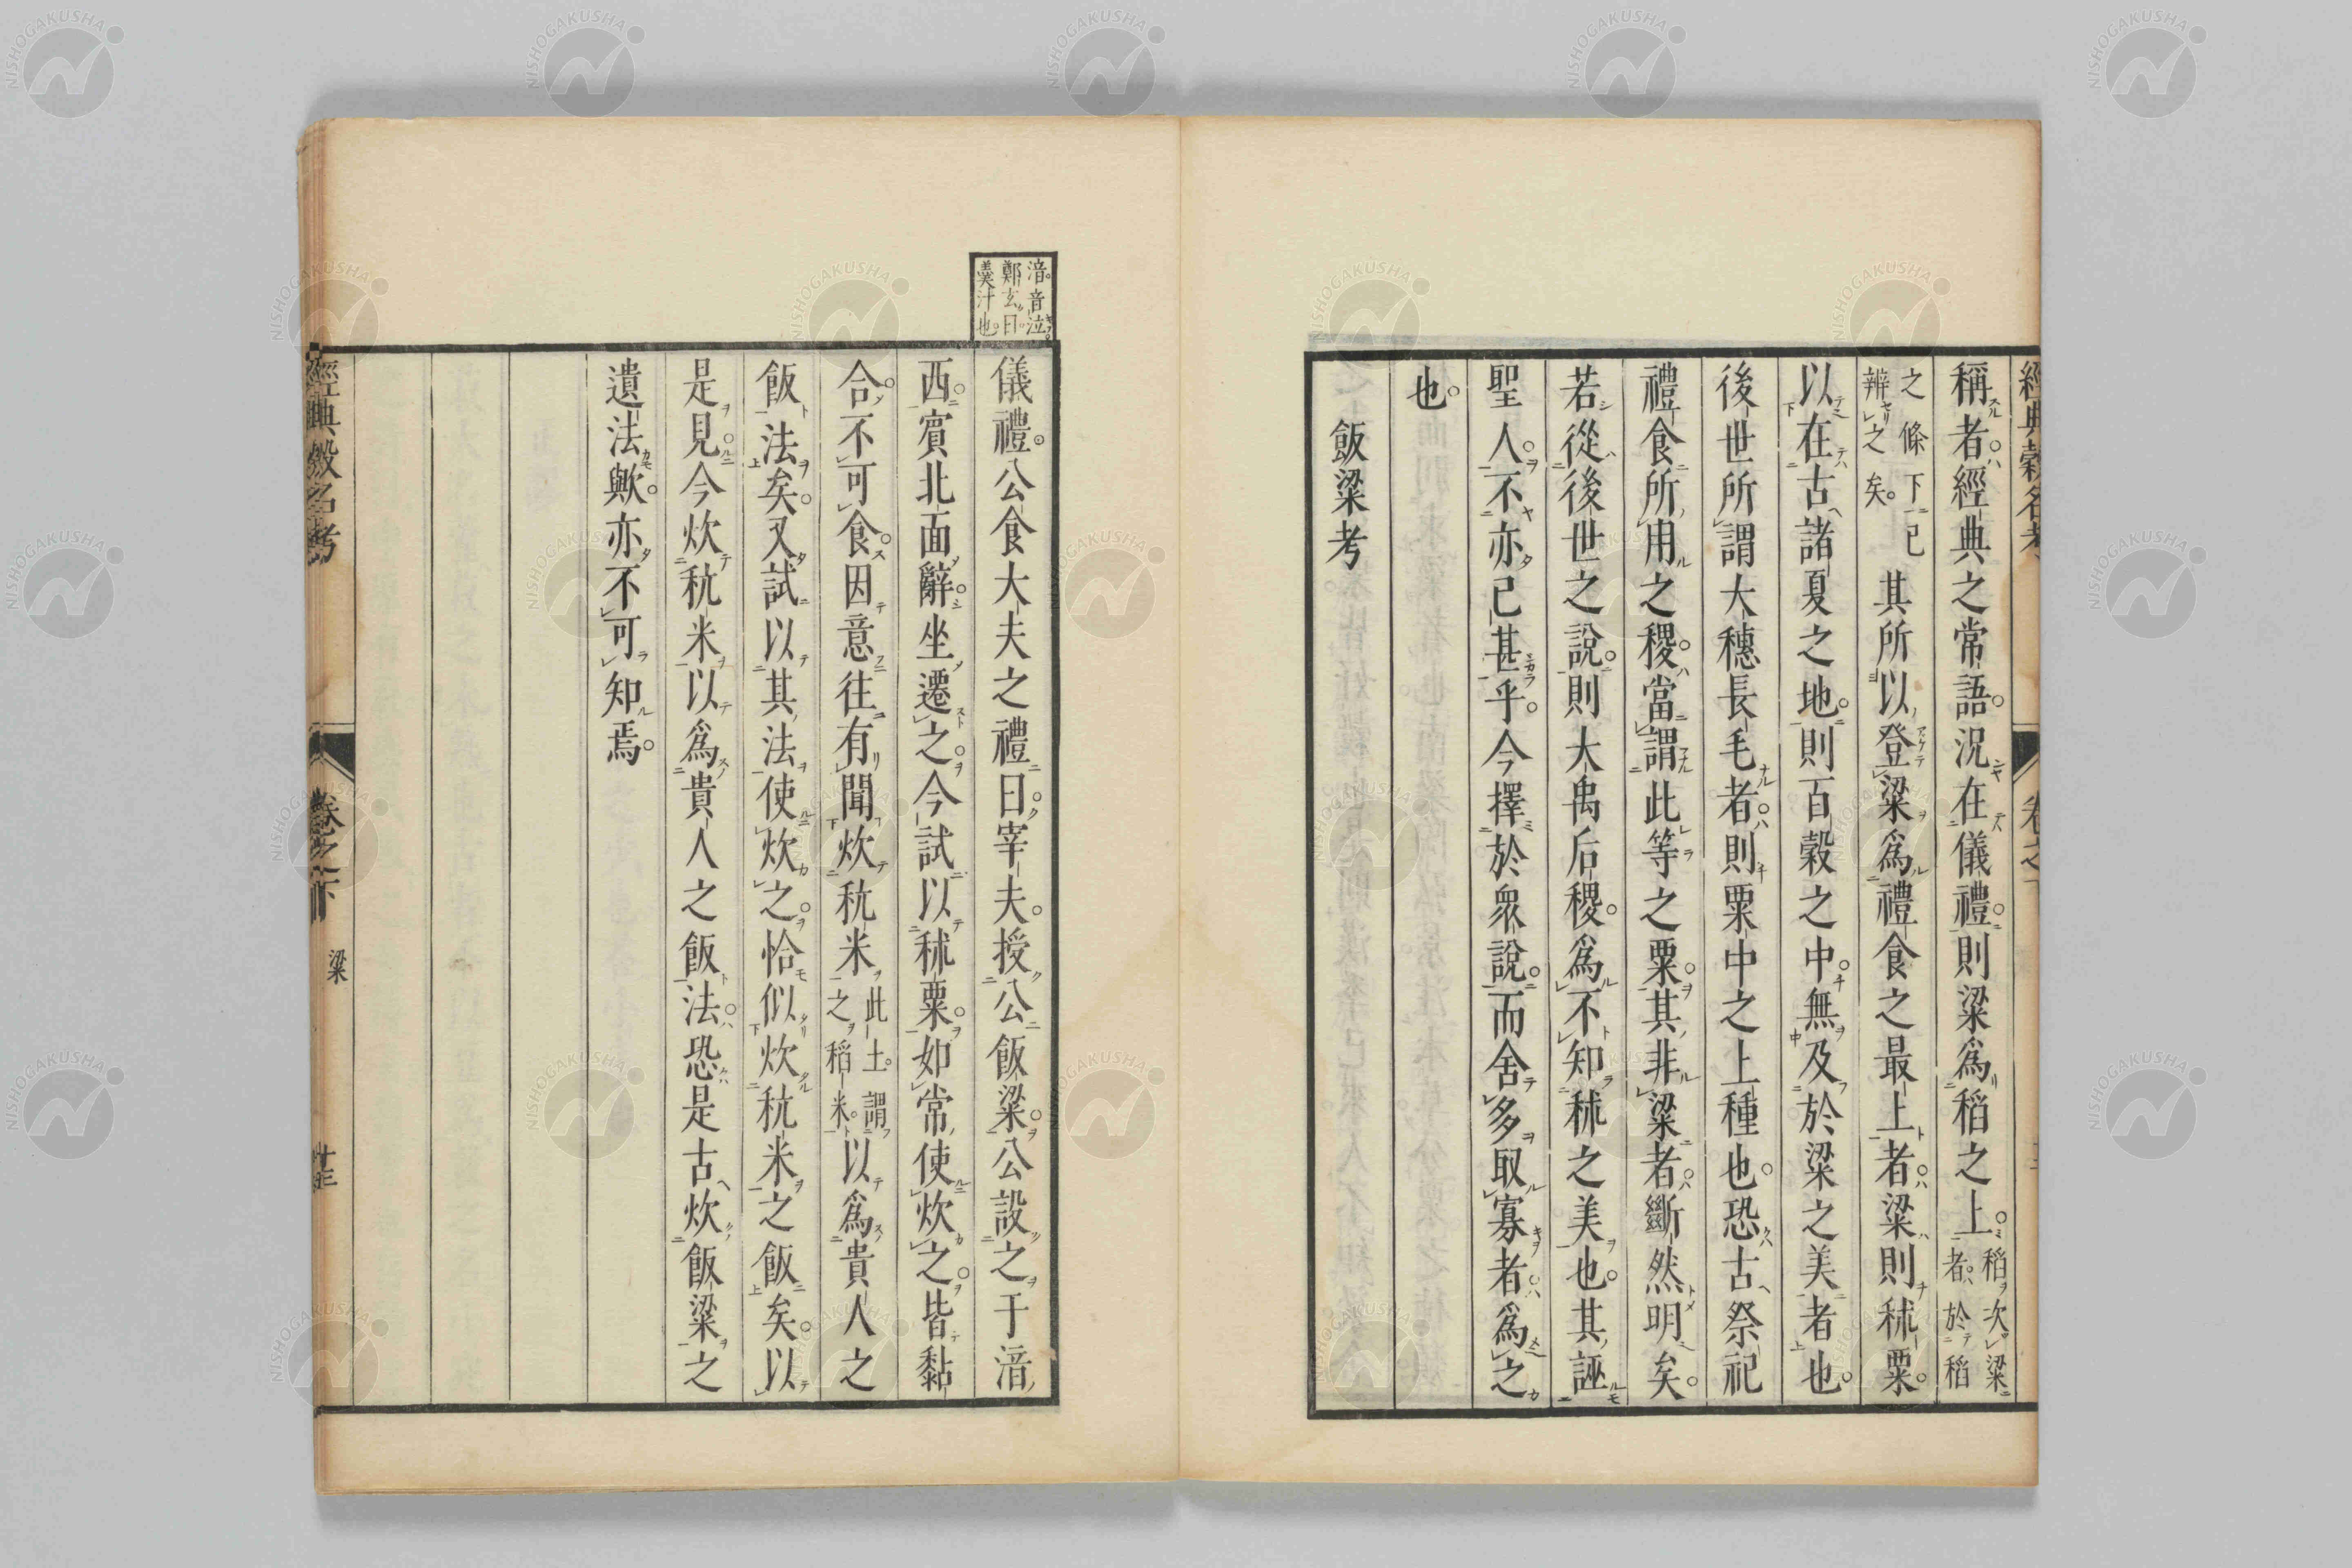 經典穀名考 卷之下
稱者經典之常語況在儀禮則粱爲稻之上稻次粱者於稻
之條下已辨之矣其所以登粱爲禮食之最上者粱則秫粟
以在古諸夏之地則百穀之中無及於粱之美者也
後世所謂大穗長毛者則粟中之上種也恐古祭祀
禮食所用之稷當謂此等之粟其非粱者斷然明矣
若從後世之說則大禹后稷爲不知秫之美也其誣
聖人不亦已甚乎今擇於衆說而舍多取寡者爲之
也
飯粱考
湆音泣
鄭玄曰
羹汁也
儀禮公食大夫之禮曰宰夫授公飯粱公設之于湆
西賓北面辭坐遷之今試以秫粟如常使炊之皆黏
合不可食因意往有聞炊秔米此土謂之稻米以爲貴人之
飯法矣又試以其法使炊之恰似炊秔米之飯矣以
是見今炊秔米以爲貴人之飯法恐是古炊飯粱之
遺法歟亦不可知焉
經典穀名考 卷之下 粱